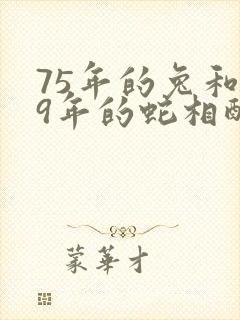 75年的兔和
9年的蛇相配
蒙华才